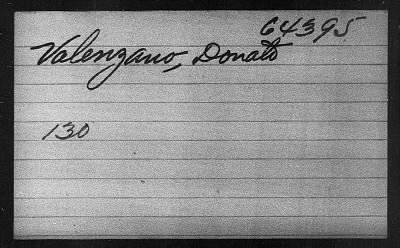 64395
Valenzano, Donato
130